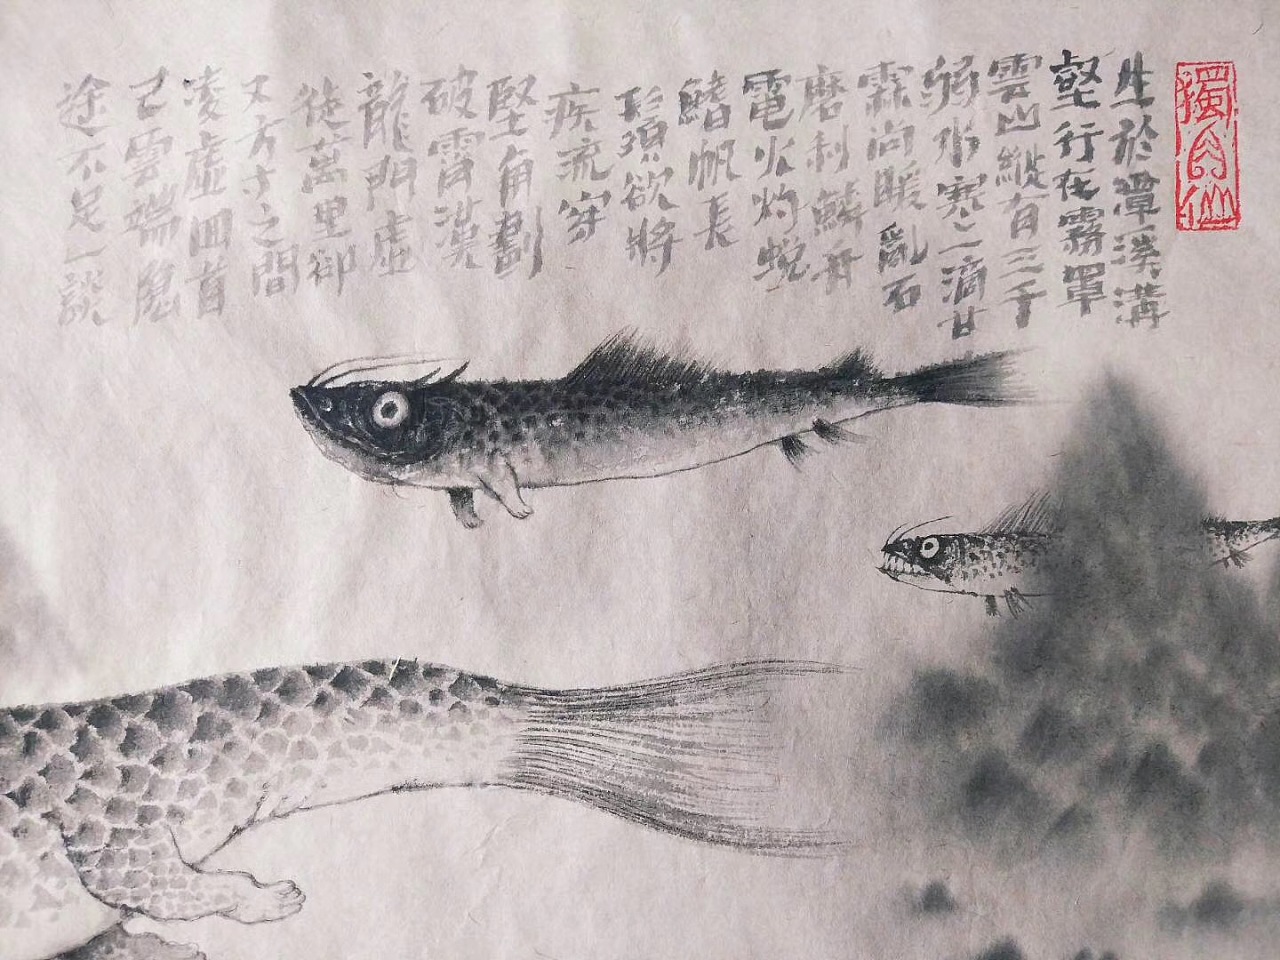 生於潭溪溝
壑行在霧罩
雲山縱有三千
弱水寒一滴甘
霖尚暖亂石
磨利鱗舟
電火灼蛻
鰭帆長
鬚欲將
疾流穿
堅角劃
破霄漢
龍門虛
從萬里卻
又方寸之間
凌虛回首
已雲端
途不足一談